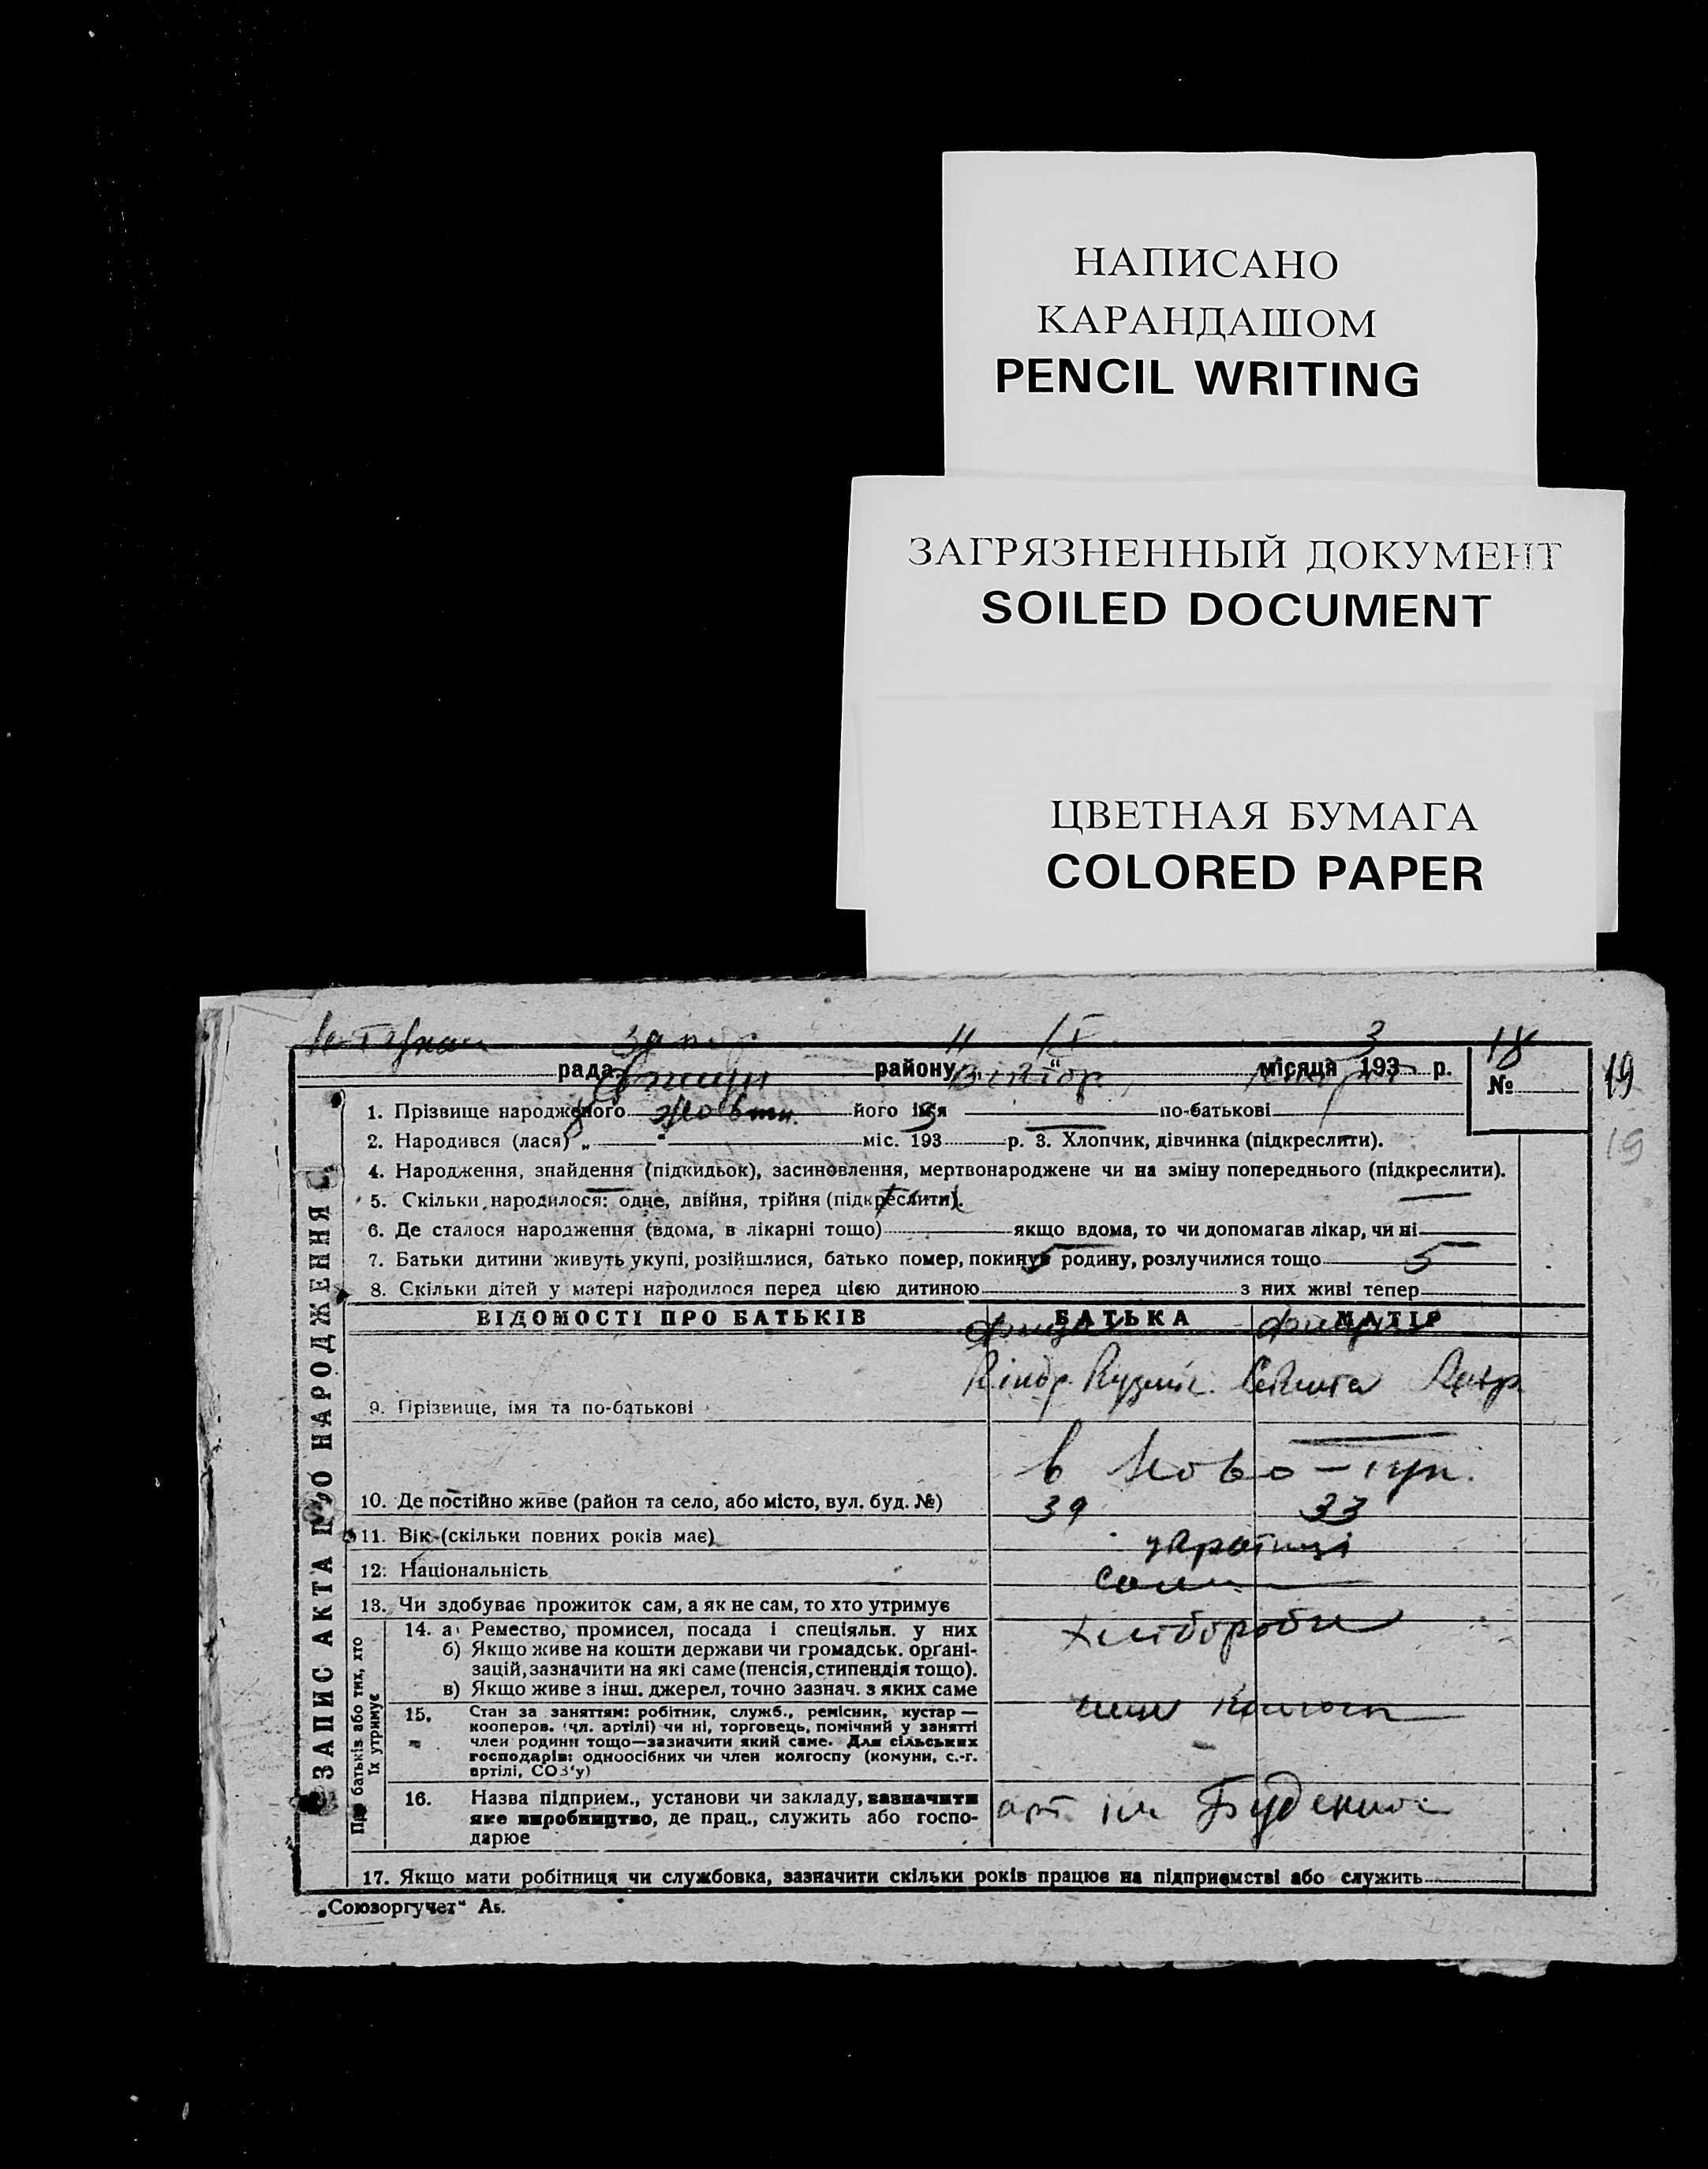 НАПИСАНО
КАРАНДАШОМ
PENCIL WRITING
ЗАГРЯЗНЕННЫЙ ДОКУМЕНТ
SOILED DOCUMENT
ЦВЕТНАЯ БУМАГА
COLORED PAPER
11 IX 3 18
рада району „ “ місяця 193 р. №
19
1. Прізвище народженого його імя по-батькові
2. Народився (лася) „ міс. 193 р. 3. Хлопчик, дівчинка (підкреслити).
19
4. Народження, знайдення (підкидьок), засиновлення, мертвонароджене чи на зміну попереднього (підкреслити).
5. Скільки народилося: одне, двійня, трійня (підкреслити).
6. Де сталося народження (вдома, в лікарні тощо) якщо вдома, то чи допомагав лікар, чи ні
7. Батьки дитини живуть укупі, розійшлися, батько помер, покинув родину, розлучилися тощо
5 5
8. Скільки дітей у матері народилося перед цією дитиною з них живі тепер
ЗАПИС АКТА ПРО НАРОДЖЕННЯ
ВІДОМОСТІ ПРО БАТЬКІВ БАТЬКА МАТІР
9. Прізвище, імя та по-батькові
в Ново-
10. Де постійно живе (район та село, або місто, вул. буд. №)
39 33
11. Вік (скільки повних років має)
українці
12. Національність
сами
13. Чи здобуває прожиток сам, а як не сам, то хто утримує
Про батьків або тих, хто
їх утримує
14. а) Ремество, промисел, посада і спеціяльн. у них
хлібороби
б) Якщо живе на кошти держави чи громадськ. органі-
зацій, зазначити на які саме (пенсія, стипендія тощо).
в) Якщо живе з інш. джерел, точно зазнач. з яких саме
15. Стан за заняттям: робітник, служб., ремісник, кустар—
кооперов. (чл. артілі) чи ні, торговець, помічний у занятті
член родини тощо—зазначити який саме. Для сільських
господарів: одноосібних чи член колгоспу (комуни, с.-г.
артілі, СОЗ'у)
16. Назва підприєм., установи чи закладу, зазначити
яке виробництво, де прац., служить або госпо-
дарює
арт ім
17. Якщо мати робітниця чи службовка, зазначити скільки років працює на підприємстві або служить
„Союзоргучет“ А5.